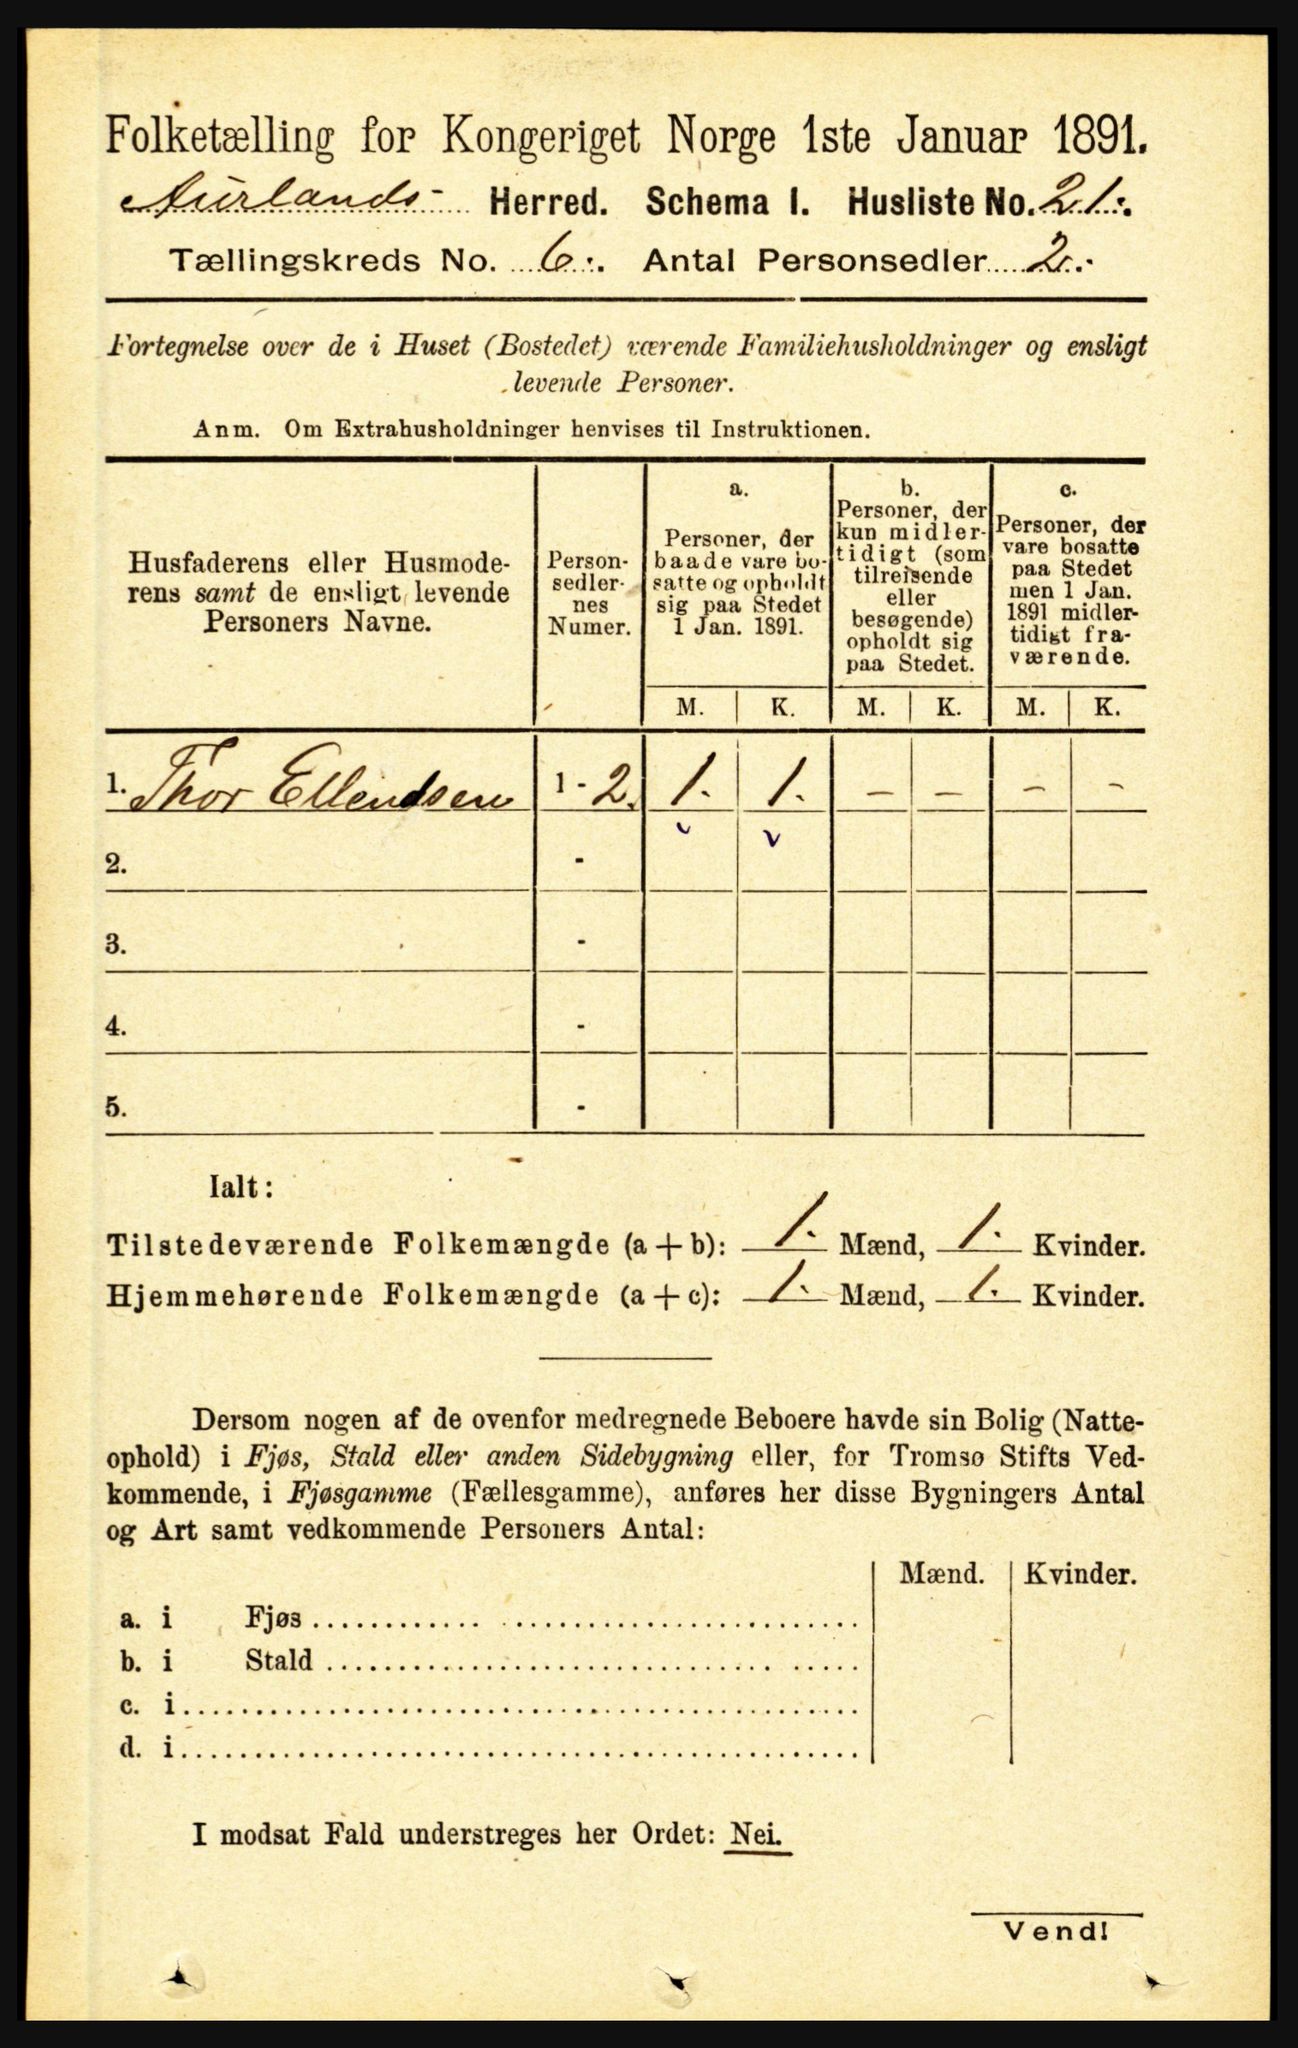 Folketælling for Kongeriget Norge 1ste Januar 1891.
Aurlands- Herred. Schema I. Husliste No. 21.
Tællingskreds No. 6. Antal Personsedler 2.
Fortegnelse over de i Huset (Bostedet) værende Familiehusholdninger og ensligt
levende Personer.
Anm. Om Extrahusholdninger henvises til Instruktionen.
Husfaderens eller Husmode-
rens samt de ensligt levende
Personers Navne.
Person-
sedler-
nes
Numer.
a.
Personer, der
baade vare bo-
satte og opholdt
sig paa Stedet
1 Jan. 1891.
b.
Personer, der
kun midler-
tidigt (som
tilreisende
eller
besøgende)
opholdt sig
paa Stedet.
c.
Personer, der
vare bosatte
paa Stedet
men 1 Jan.
1891 midler-
tidigt fra-
værende.
M. K. M. K. M. K.
1. Thor Ellendsen 1 - 2. 1. 1. - - - -
2. -
3. -
4. -
5. -
Ialt:
Tilstedeværende Folkemængde (a + b): 1. Mænd, 1. Kvinder.
Hjemmehørende Folkemængde (a + c): 1. Mænd, 1. Kvinder.
Dersom nogen af de ovenfor medregnede Beboere havde sin Bolig (Natte-
ophold) i Fjøs, Stald eller anden Sidebygning eller, for Tromsø Stifts Ved-
kommende, i Fjøsgamme (Fællesgamme), anføres her disse Bygningers Antal
og Art samt vedkommende Personers Antal:
Mænd. Kvinder.
a. i Fjøs
b. i Stald
c. i
d. i
I modsat Fald understreges her Ordet: Nei.
Vend!